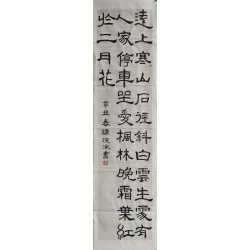 遠上寒山石徑斜白雲生處有
人家停車坐愛楓林晚霜葉紅
於二月花
辛丑春 冰書